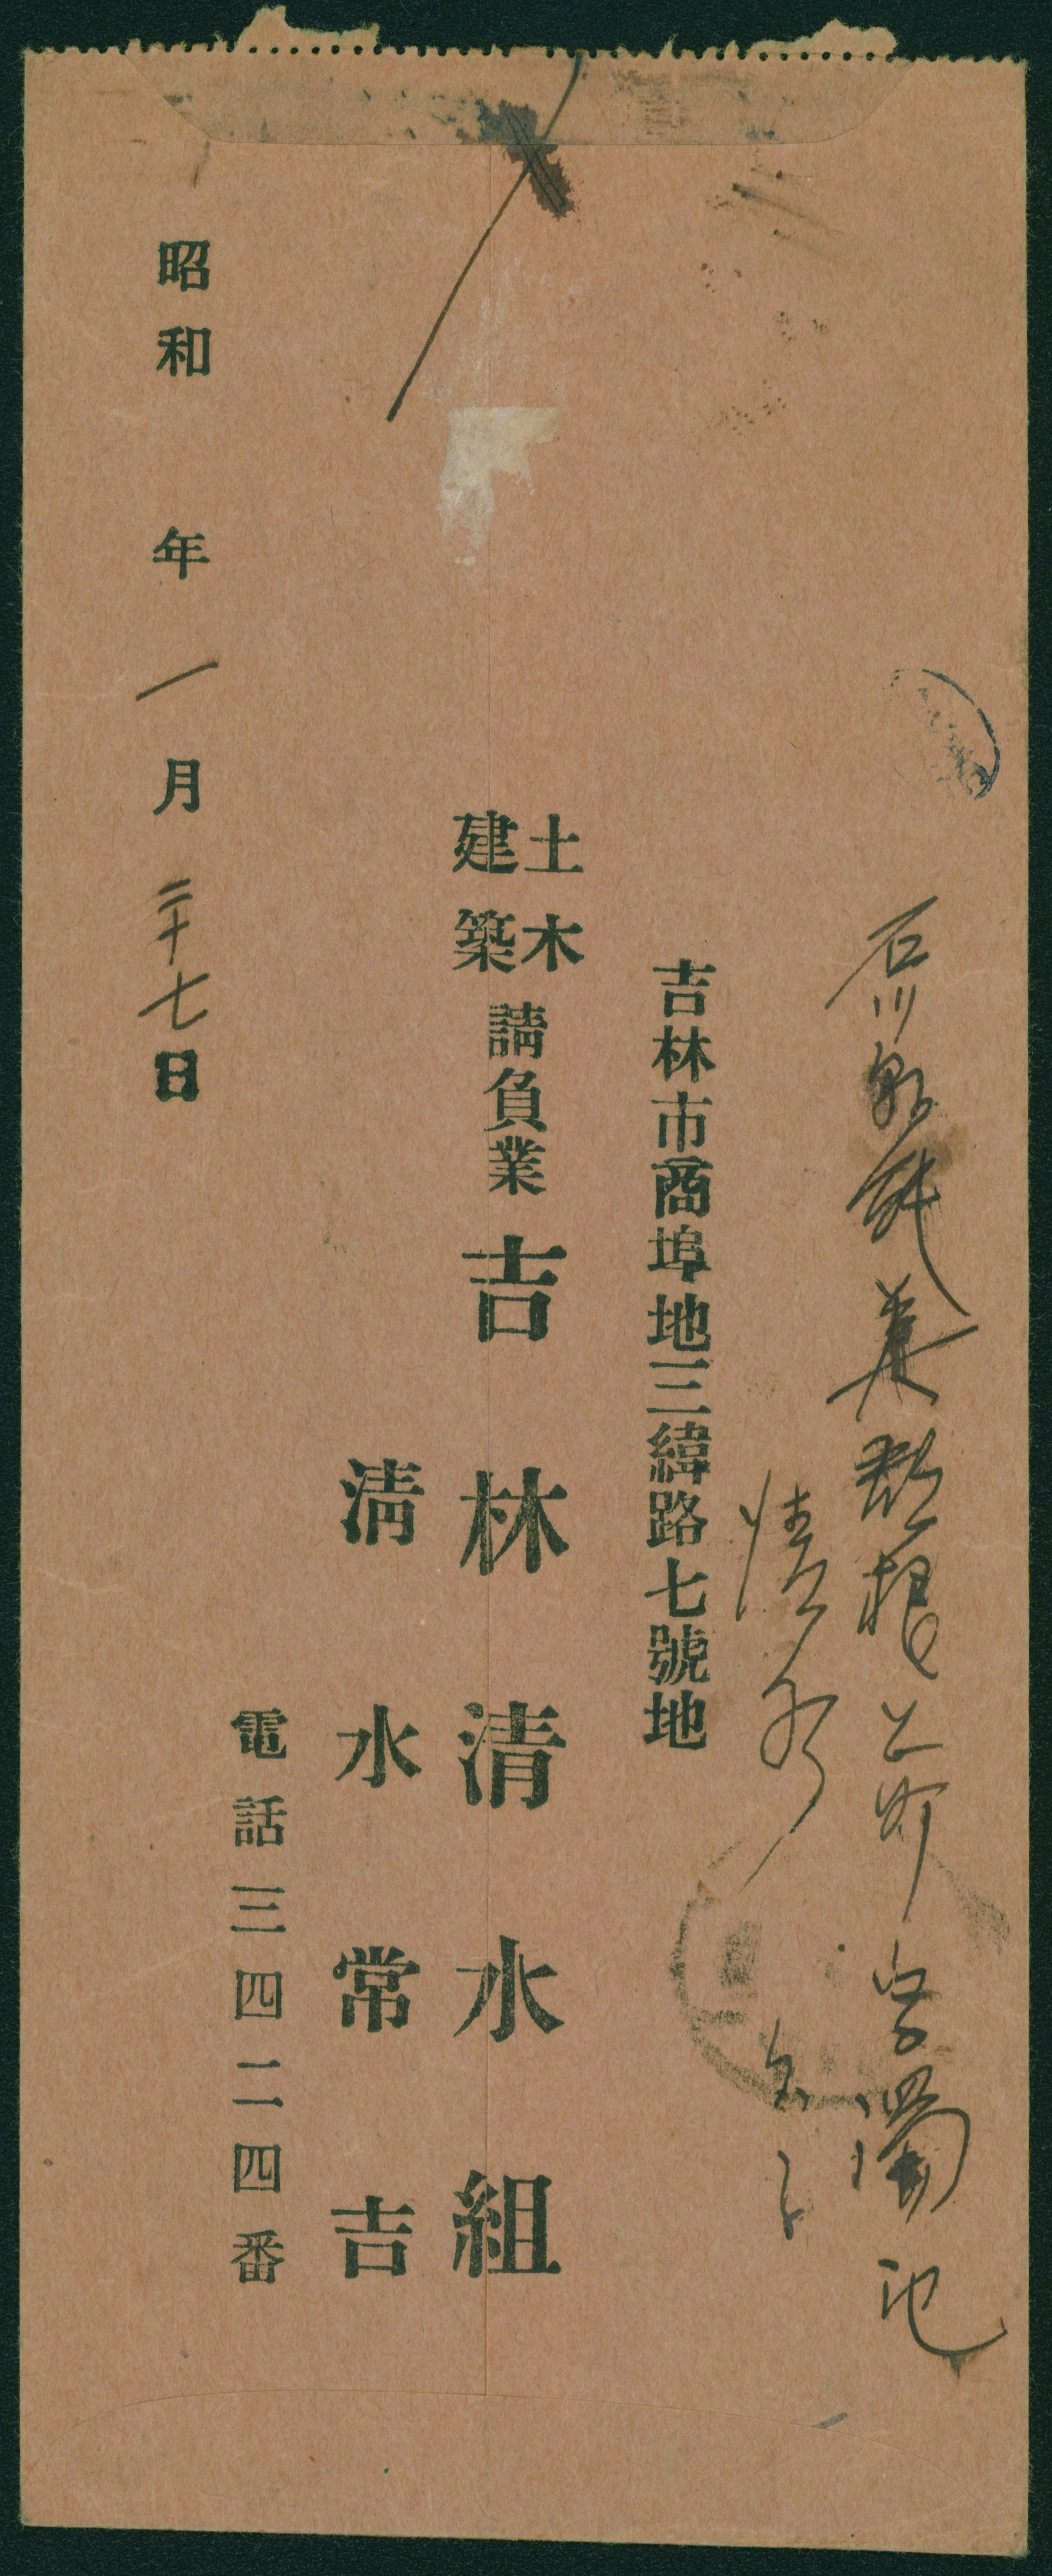 石川県能美郡根上町字濁池
清水
吉林市商埠地三緯路七號地
土木
建築
請負業
吉林清水組
清水常吉
電話三四二四番
昭和 年一月二十七日